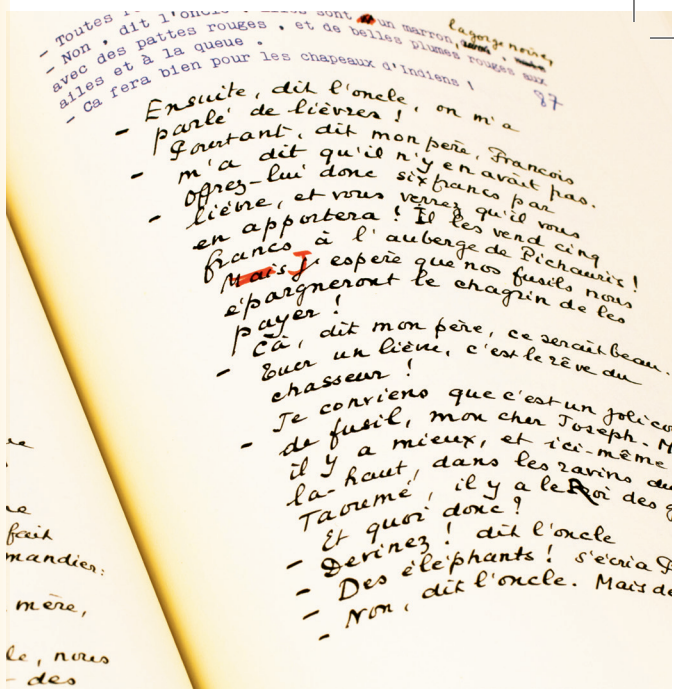 - Toutes
- Non, dit l'oncle. sont un marron, la gorge noire,
avec des pattes rouges, et de belles plumes rouges aux
ailes et à la queue.
- Ca fera bien pour les chapeaux d'Indiens !
87
- Ensuite, dit l'oncle, on m'a
parlé de lièvres !
- Pourtant, dit mon père, Francois
m'a dit qu'il n'y en avait pas.
- Offrez-lui donc six francs par
lièvre, et vous verrez qu'il vous
en apportera ! Il les vend cinq
francs à l'auberge de Pichauris !
Mais J'espère que nos fusils nous
épargneront le chagrin de les
payer !
- Cà, dit mon père, ce serait beau.
Tuer un lièvre, c'est le rêve du
chasseur !
- Je conviens que c'est un joli co
de fusil, mon cher Joseph. M
il y a mieux, et ici-même
là-haut, dans les ravins du
Taoumé, il y a le Roi des g
- Et quoi donc ?
- Devinez ! dit l'oncle
- Des éléphants ! s'écria P
- Non, dit l'oncle. Mais de
fait
mandier:
mère,
le, nous
- des